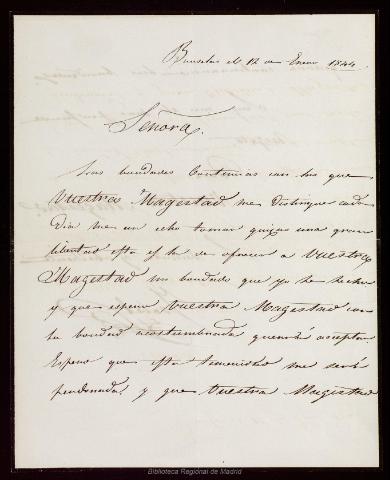 Bruselas el 12 de Enero 1844
Señora,
Las bondades continuas con las que
Vuestra Magestad me distingue cada
dia me an echo tomar quizas una gran
libertad esta es la de ofrecer a Vuestra
Magestad un bordado que yo he hecho
y que espero Vuestra Magestad con
la bondad acostumbrada querrá aceptar
Espero que esta temeridad me será
perdonada, y que Vuestra Magestad
Biblioteca Regional de Madrid